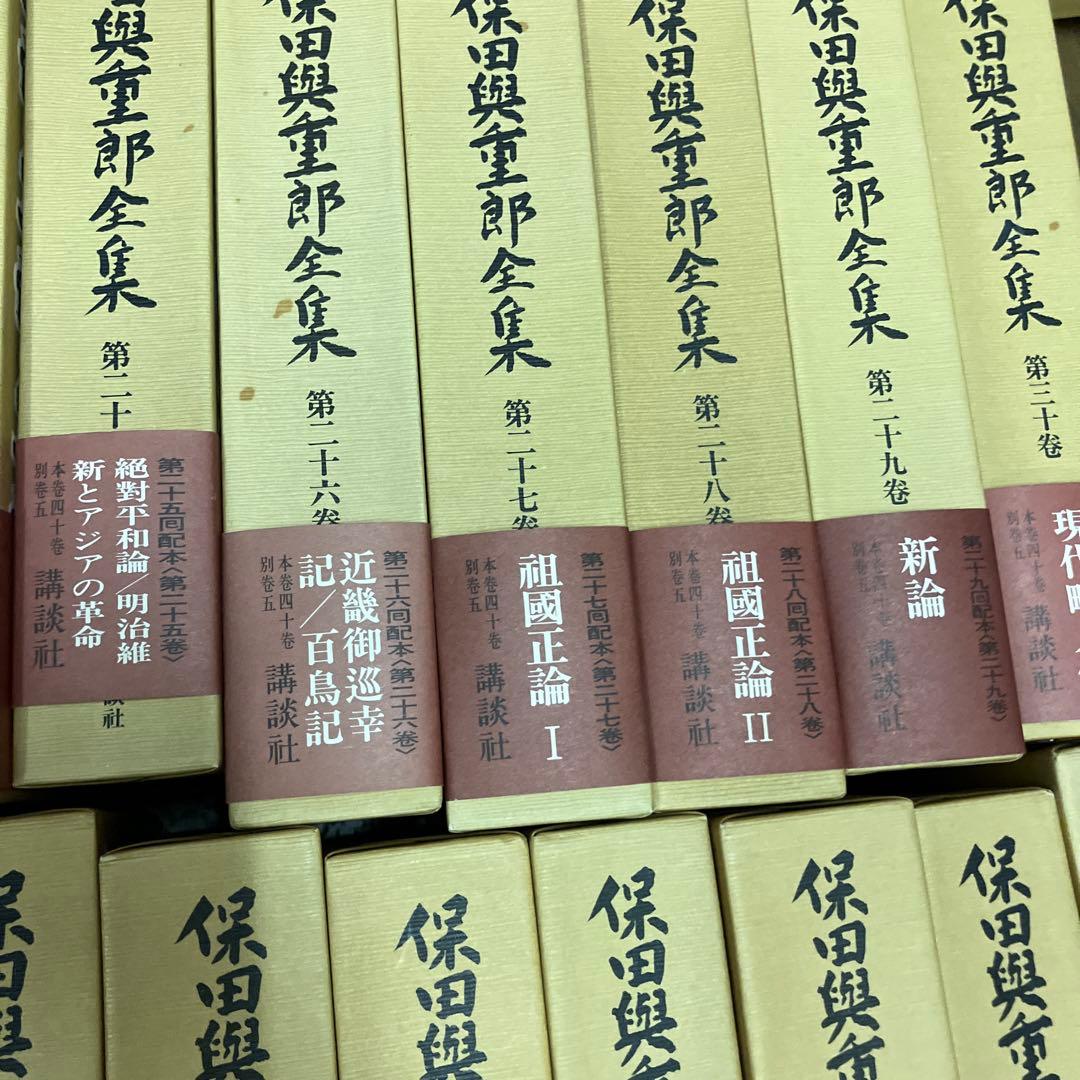 與重郎全集
第二十
第二十五回配本〈第二十五巻〉
絕對平和論/明治維
新とアジアの革命
本巻四十巻
別巻五
講談社
談社
保田與重郎全集
第二十六巻
第二十六回配本〈第二十六巻〉
近畿御巡幸
記/百鳥記
本巻四十巻
別巻五
講談社
保田與重郎全集
第二十七巻
第二十七回配本〈第二十七巻〉
祖國正論 I
本巻四十巻
別巻五
講談社
保田與重郎全集
第二十八巻
第二十八回配本〈第二十八巻〉
祖國正論 II
本巻四十巻
別巻五
講談社
保田與重郎全集
第二十九巻
第二十九回配本〈第二十九巻〉
新論
本巻四十巻
別巻五
講談社
保田與重郎全集
第三十巻
現代
本巻四十巻
別巻五
講談社
保田與
保田與
保田與
保田與重
保田與重
保田與重